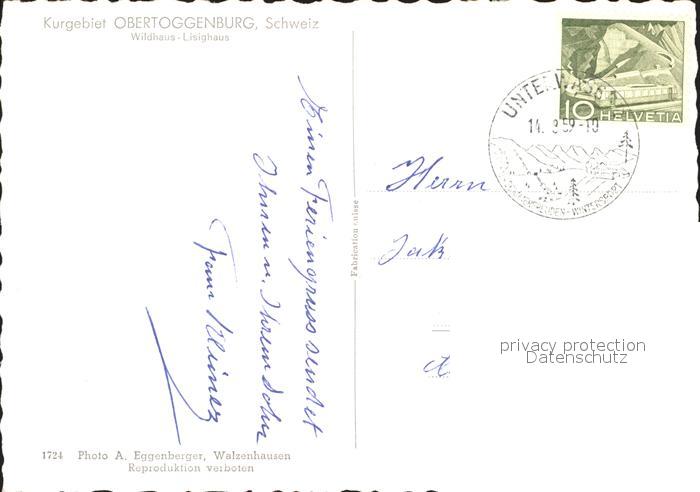 Kurgebiet OBERTOGGENBURG, Schweiz
Wildhaus-Lisighaus
Einen Feriengruss sendet
Ihnen u. Ihrem Sohn
Fam. Kleiner
UNTERWASSER
14. 8 59-10
SOMMERFREUDEN-WINTERSPORT
10 HELVETIA
Herrn
Jak
Fabrication suisse
privacy protection
Datenschutz
1724 Photo A. Eggenberger, Walzenhausen
Reproduktion verboten